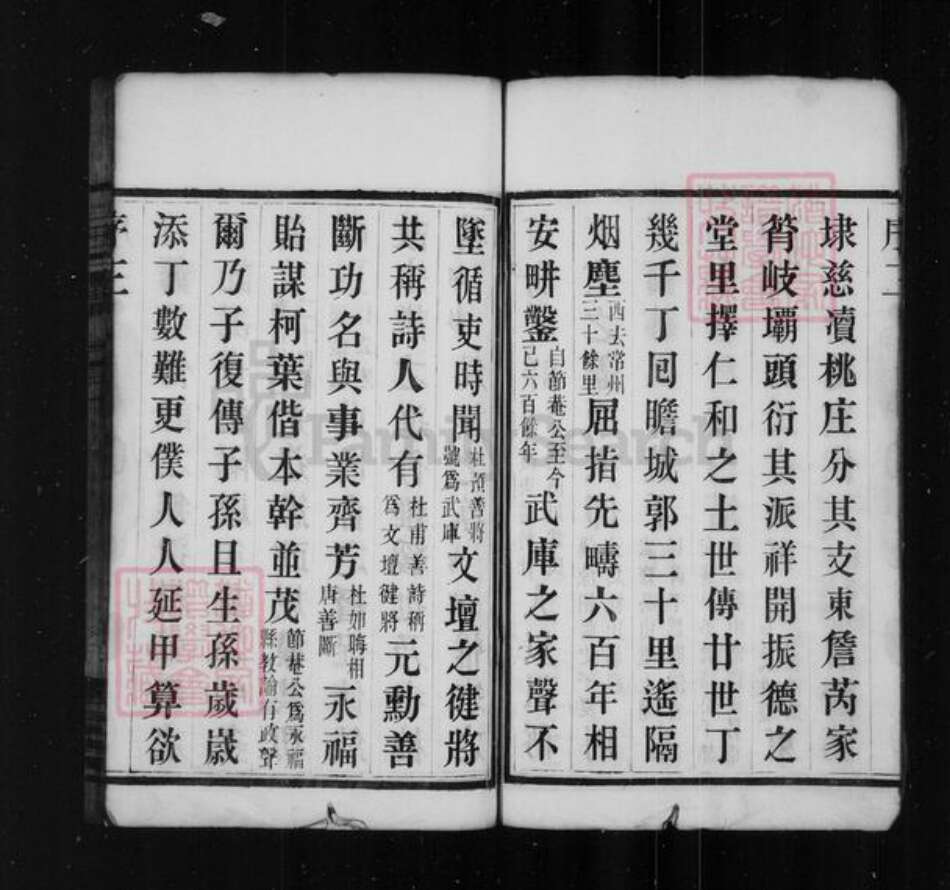 序二
埭慈瀆桃庄分其支東詹芮家
笴岐壩頭衍其派祥開振德之
堂里擇仁和之土世傳廿世丁
幾千丁囘瞻城郭三十里遙隔
烟塵西去常州三十餘里屈指先疇六百年相
安畊鑿自節菴公至今已六百餘年武庫之家聲不
墜循吏時聞杜預善將號爲武庫文壇之健將
共稱詩人代有杜甫善詩稱爲文壇健將元勳善
斷功名與事業齊芳杜如晦相唐善斷永福
貽謀柯葉偕本幹並茂節菴公爲永福縣教諭有政聲
爾乃子復傳子孫且生孫歲歲
添丁數難更僕人人延甲算欲
序三
FamilySearch